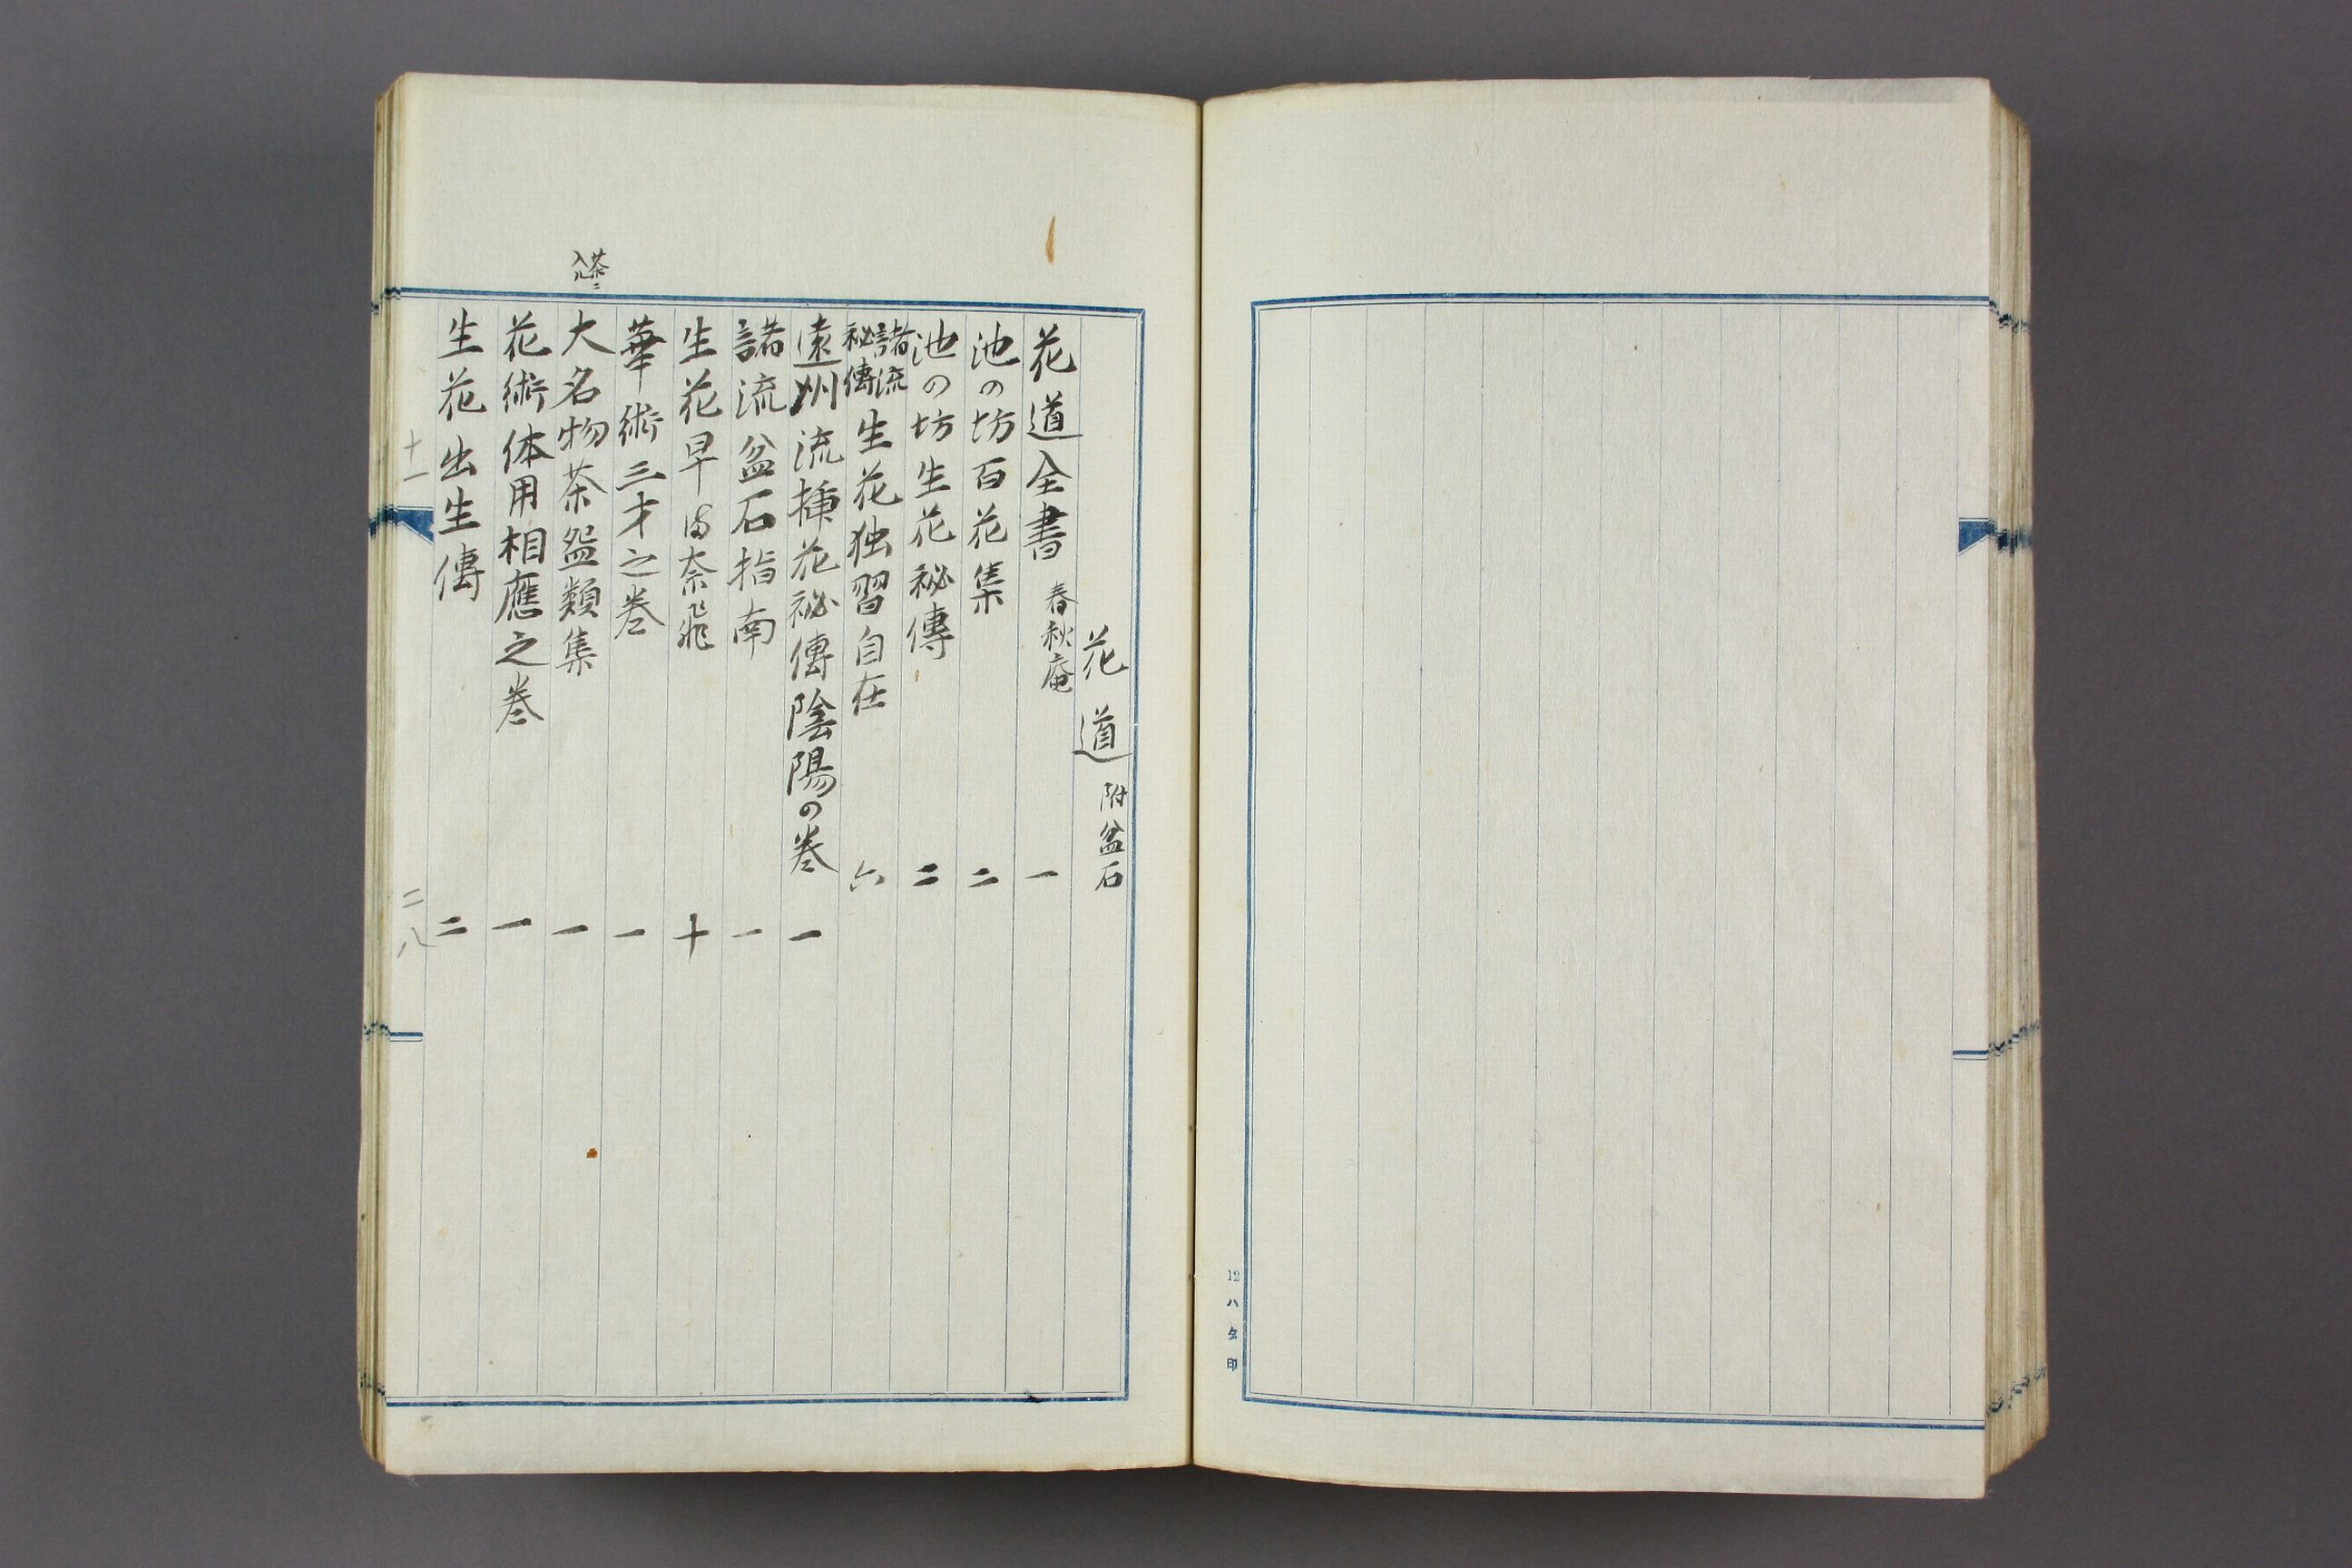 12ハタ印
花道 附盆石
花道全書 春秋庵 一
池の坊百花集 二
池の坊生花秘傳 二
諸流秘傳 生花独習自在 六
遠州流挿花秘傳陰陽の巻 一
諸流盆石指南 一
生花早満奈飛 十
華術三才之巻 一
茶ニ入ル
大名物茶盌類集 一
花術体用相應之巻 一
生花出生傳 二
十一
二八